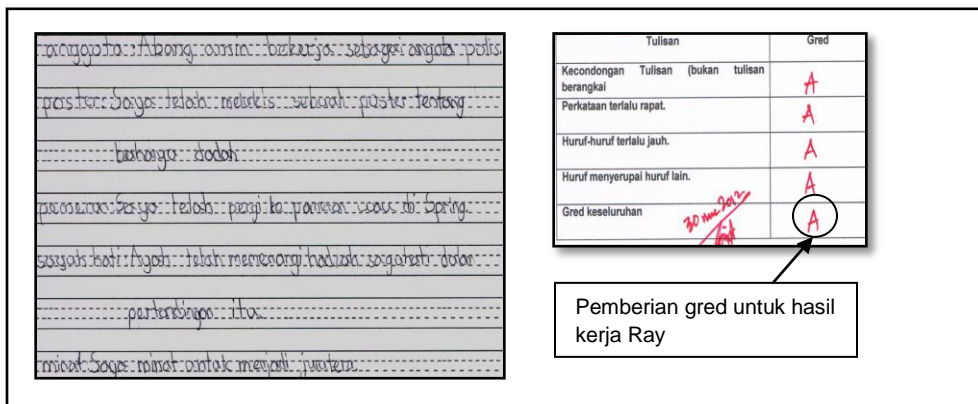 anggota : Abang amin bekerja sebagai angota polis.
poster : Saya telah melukis sebuah poster tentang
bahanya dadah
pameran : Saya telah pergi ke pameran di Spring.
hati : Ayah telah memenangi hadiah sagahati dalam
pertandingan itu.
minat : Saya minat untuk menjadi jurutera
Tulisan Gred
Kecondongan Tulisan (bukan tulisan
berangkai A
Perkataan terlalu rapat. A
Huruf-huruf terlalu jauh. A
Huruf menyerupai huruf lain. A
Gred keseluruhan 30 2012 A
Pemberian gred untuk hasil
kerja Ray